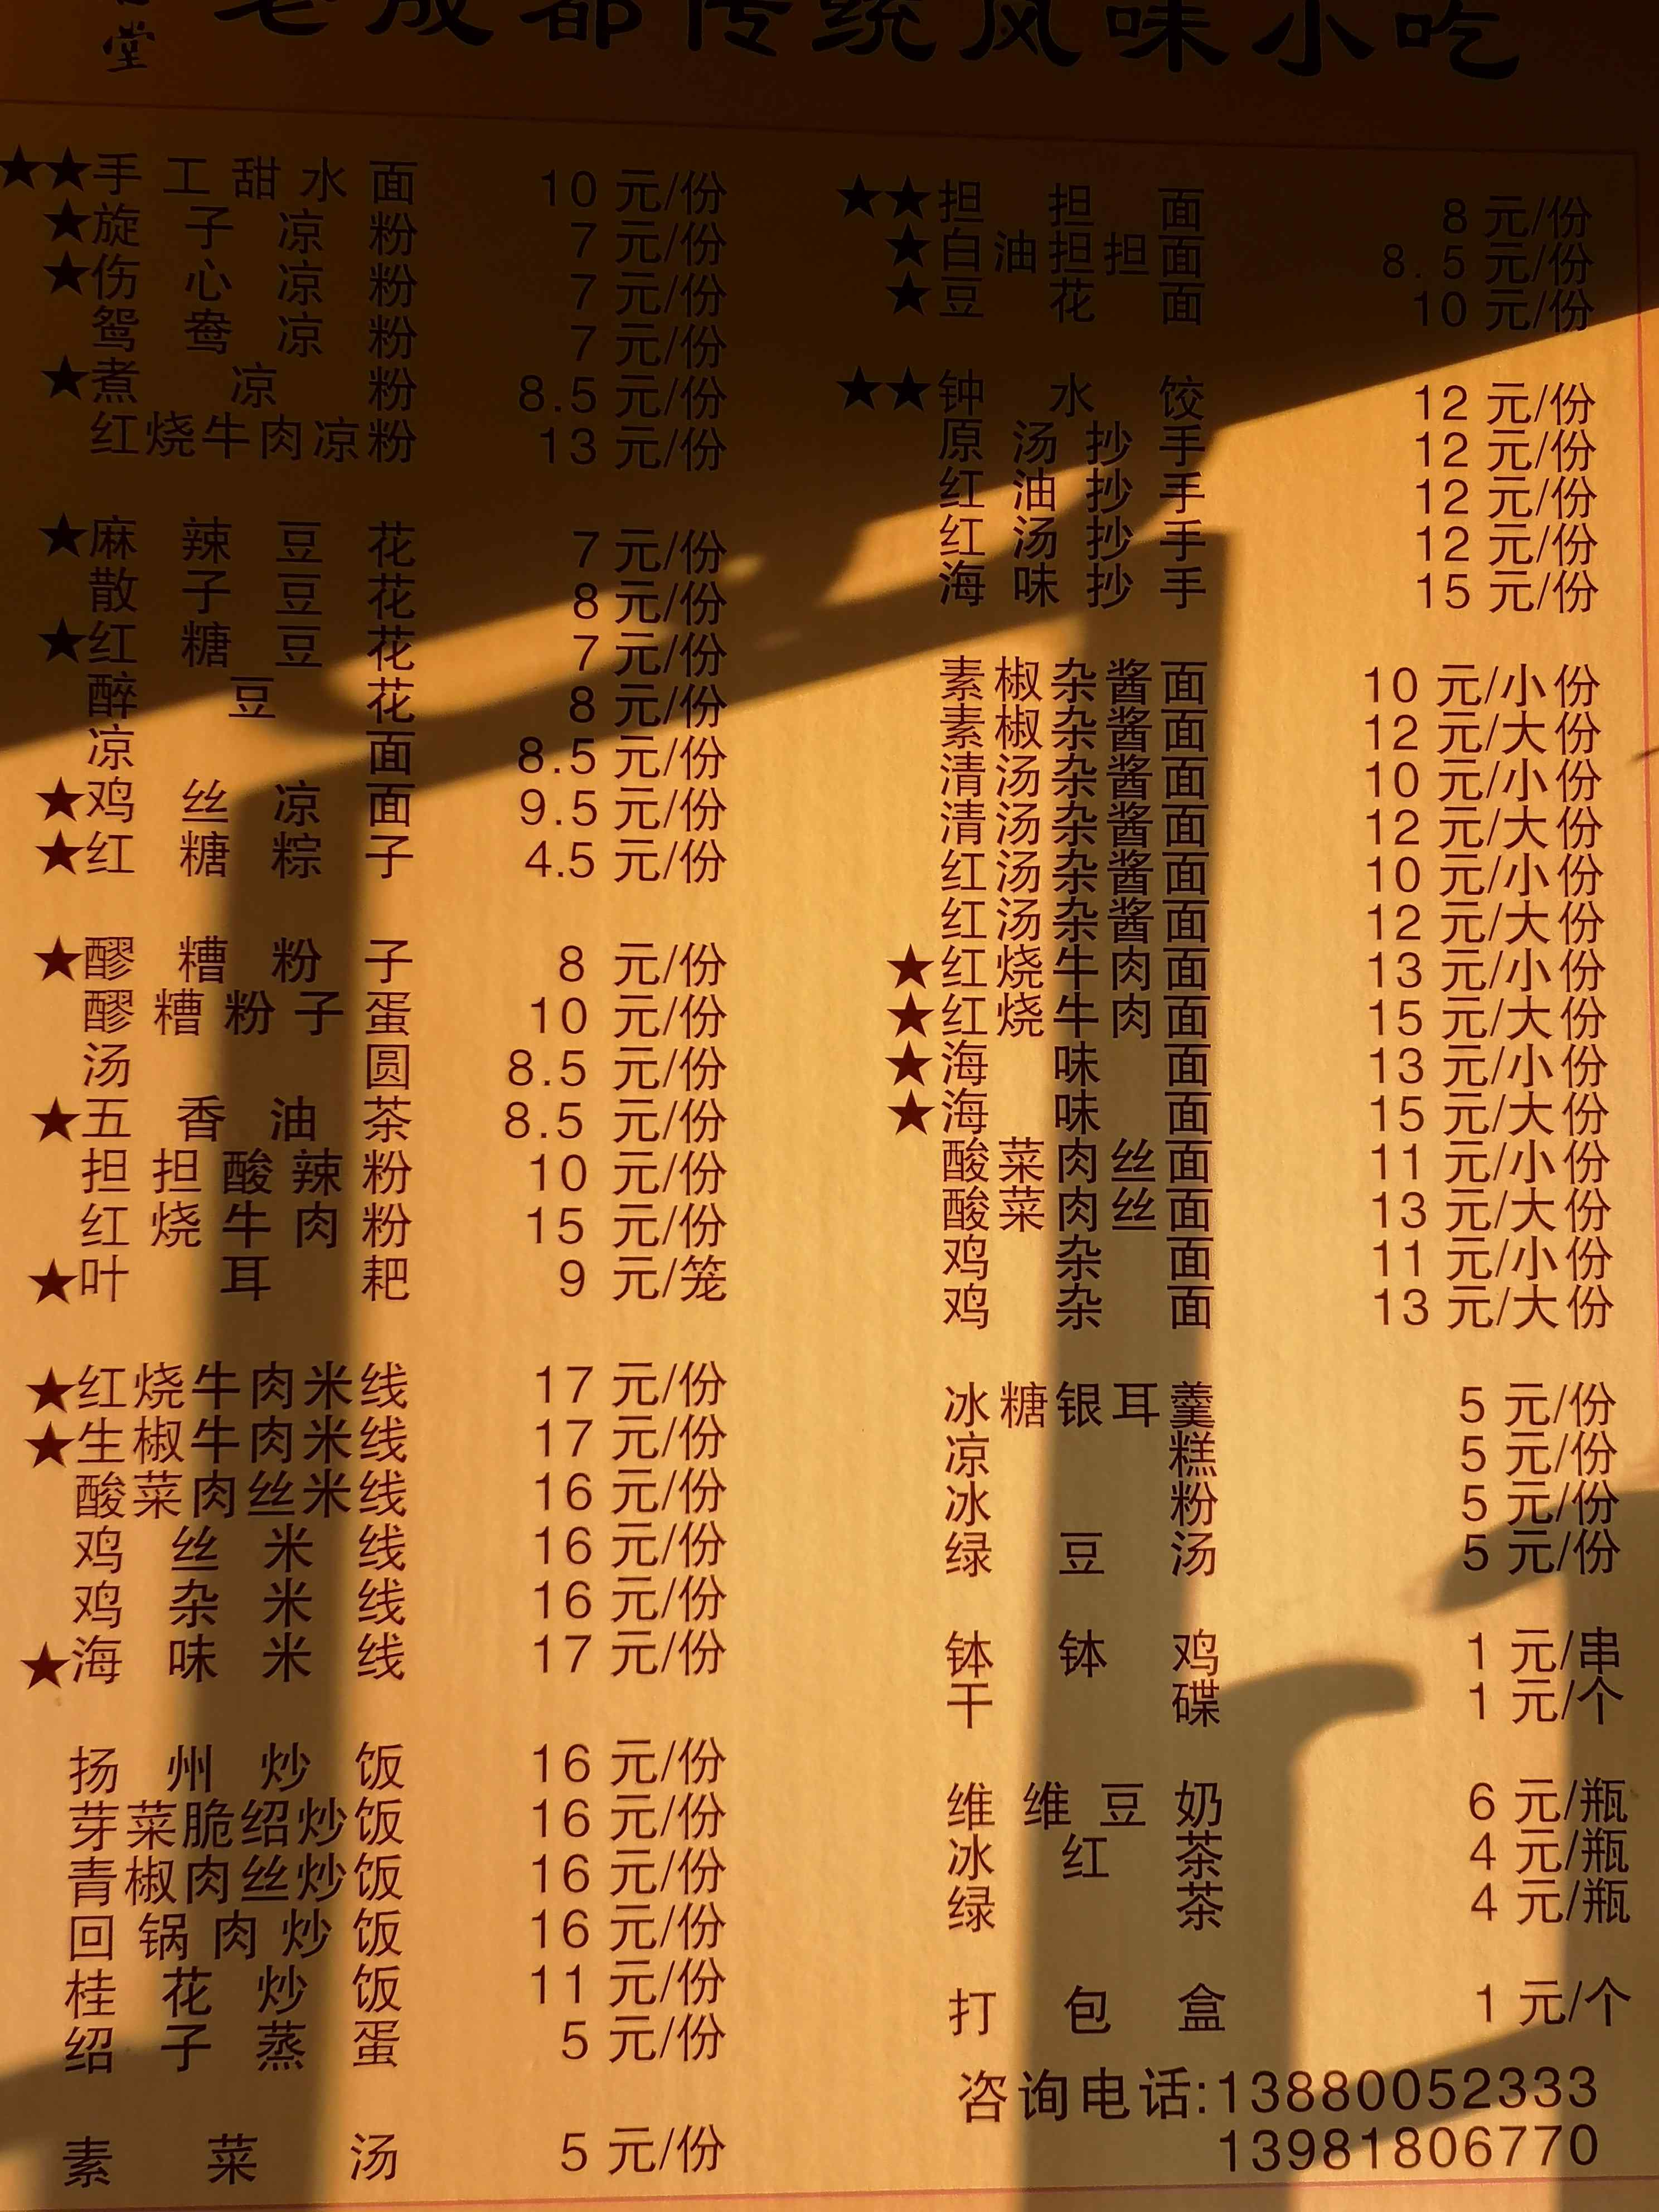 堂
老成都传统风味小吃
★★手工甜水面 10 元/份
★旋子凉粉 7 元/份
★伤心凉粉 7 元/份
鸳鸯凉粉 7 元/份
★煮凉粉 8.5 元/份
红烧牛肉凉粉 13 元/份
★麻辣豆花 7 元/份
散子豆花 8 元/份
★红糖豆花 7 元/份
醉豆花 8 元/份
凉面 8.5 元/份
★鸡丝凉面 9.5 元/份
★红糖粽子 4.5 元/份
★醪糟粉子 8 元/份
醪糟粉子蛋 10 元/份
汤圆 8.5 元/份
★五香油茶 8.5 元/份
担担酸辣粉 10 元/份
红烧牛肉粉 15 元/份
★叶耳耙 9 元/笼
★红烧牛肉米线 17 元/份
★生椒牛肉米线 17 元/份
酸菜肉丝米线 16 元/份
鸡丝米线 16 元/份
鸡杂米线 16 元/份
★海味米线 17 元/份
扬州炒饭 16 元/份
芽菜脆绍炒饭 16 元/份
青椒肉丝炒饭 16 元/份
回锅肉炒饭 16 元/份
桂花炒饭 11 元/份
绍子蒸蛋 5 元/份
素菜汤 5 元/份
★★担担面 8 元/份
★白油担担面 8.5 元/份
★豆花面 10 元/份
★★钟水饺 12 元/份
原汤抄手 12 元/份
红油抄手 12 元/份
红汤抄手 12 元/份
海味抄手 15 元/份
素椒杂酱面 10 元/小份
素椒杂酱面 12 元/大份
清汤杂酱面 10 元/小份
清汤杂酱面 12 元/大份
红汤杂酱面 10 元/小份
红汤杂酱面 12 元/大份
★红烧牛肉面 13 元/小份
★红烧牛肉面 15 元/大份
★海味面 13 元/小份
★海味面 15 元/大份
酸菜肉丝面 11 元/小份
酸菜肉丝面 13 元/大份
鸡杂面 11 元/小份
鸡杂面 13 元/大份
冰糖银耳羹 5 元/份
凉糕 5 元/份
冰粉 5 元/份
绿豆汤 5 元/份
钵钵鸡 1 元/串
干碟 1 元/个
维维豆奶 6 元/瓶
冰红茶 4 元/瓶
绿茶 4 元/瓶
打包盒 1 元/个
咨询电话:13880052333
13981806770